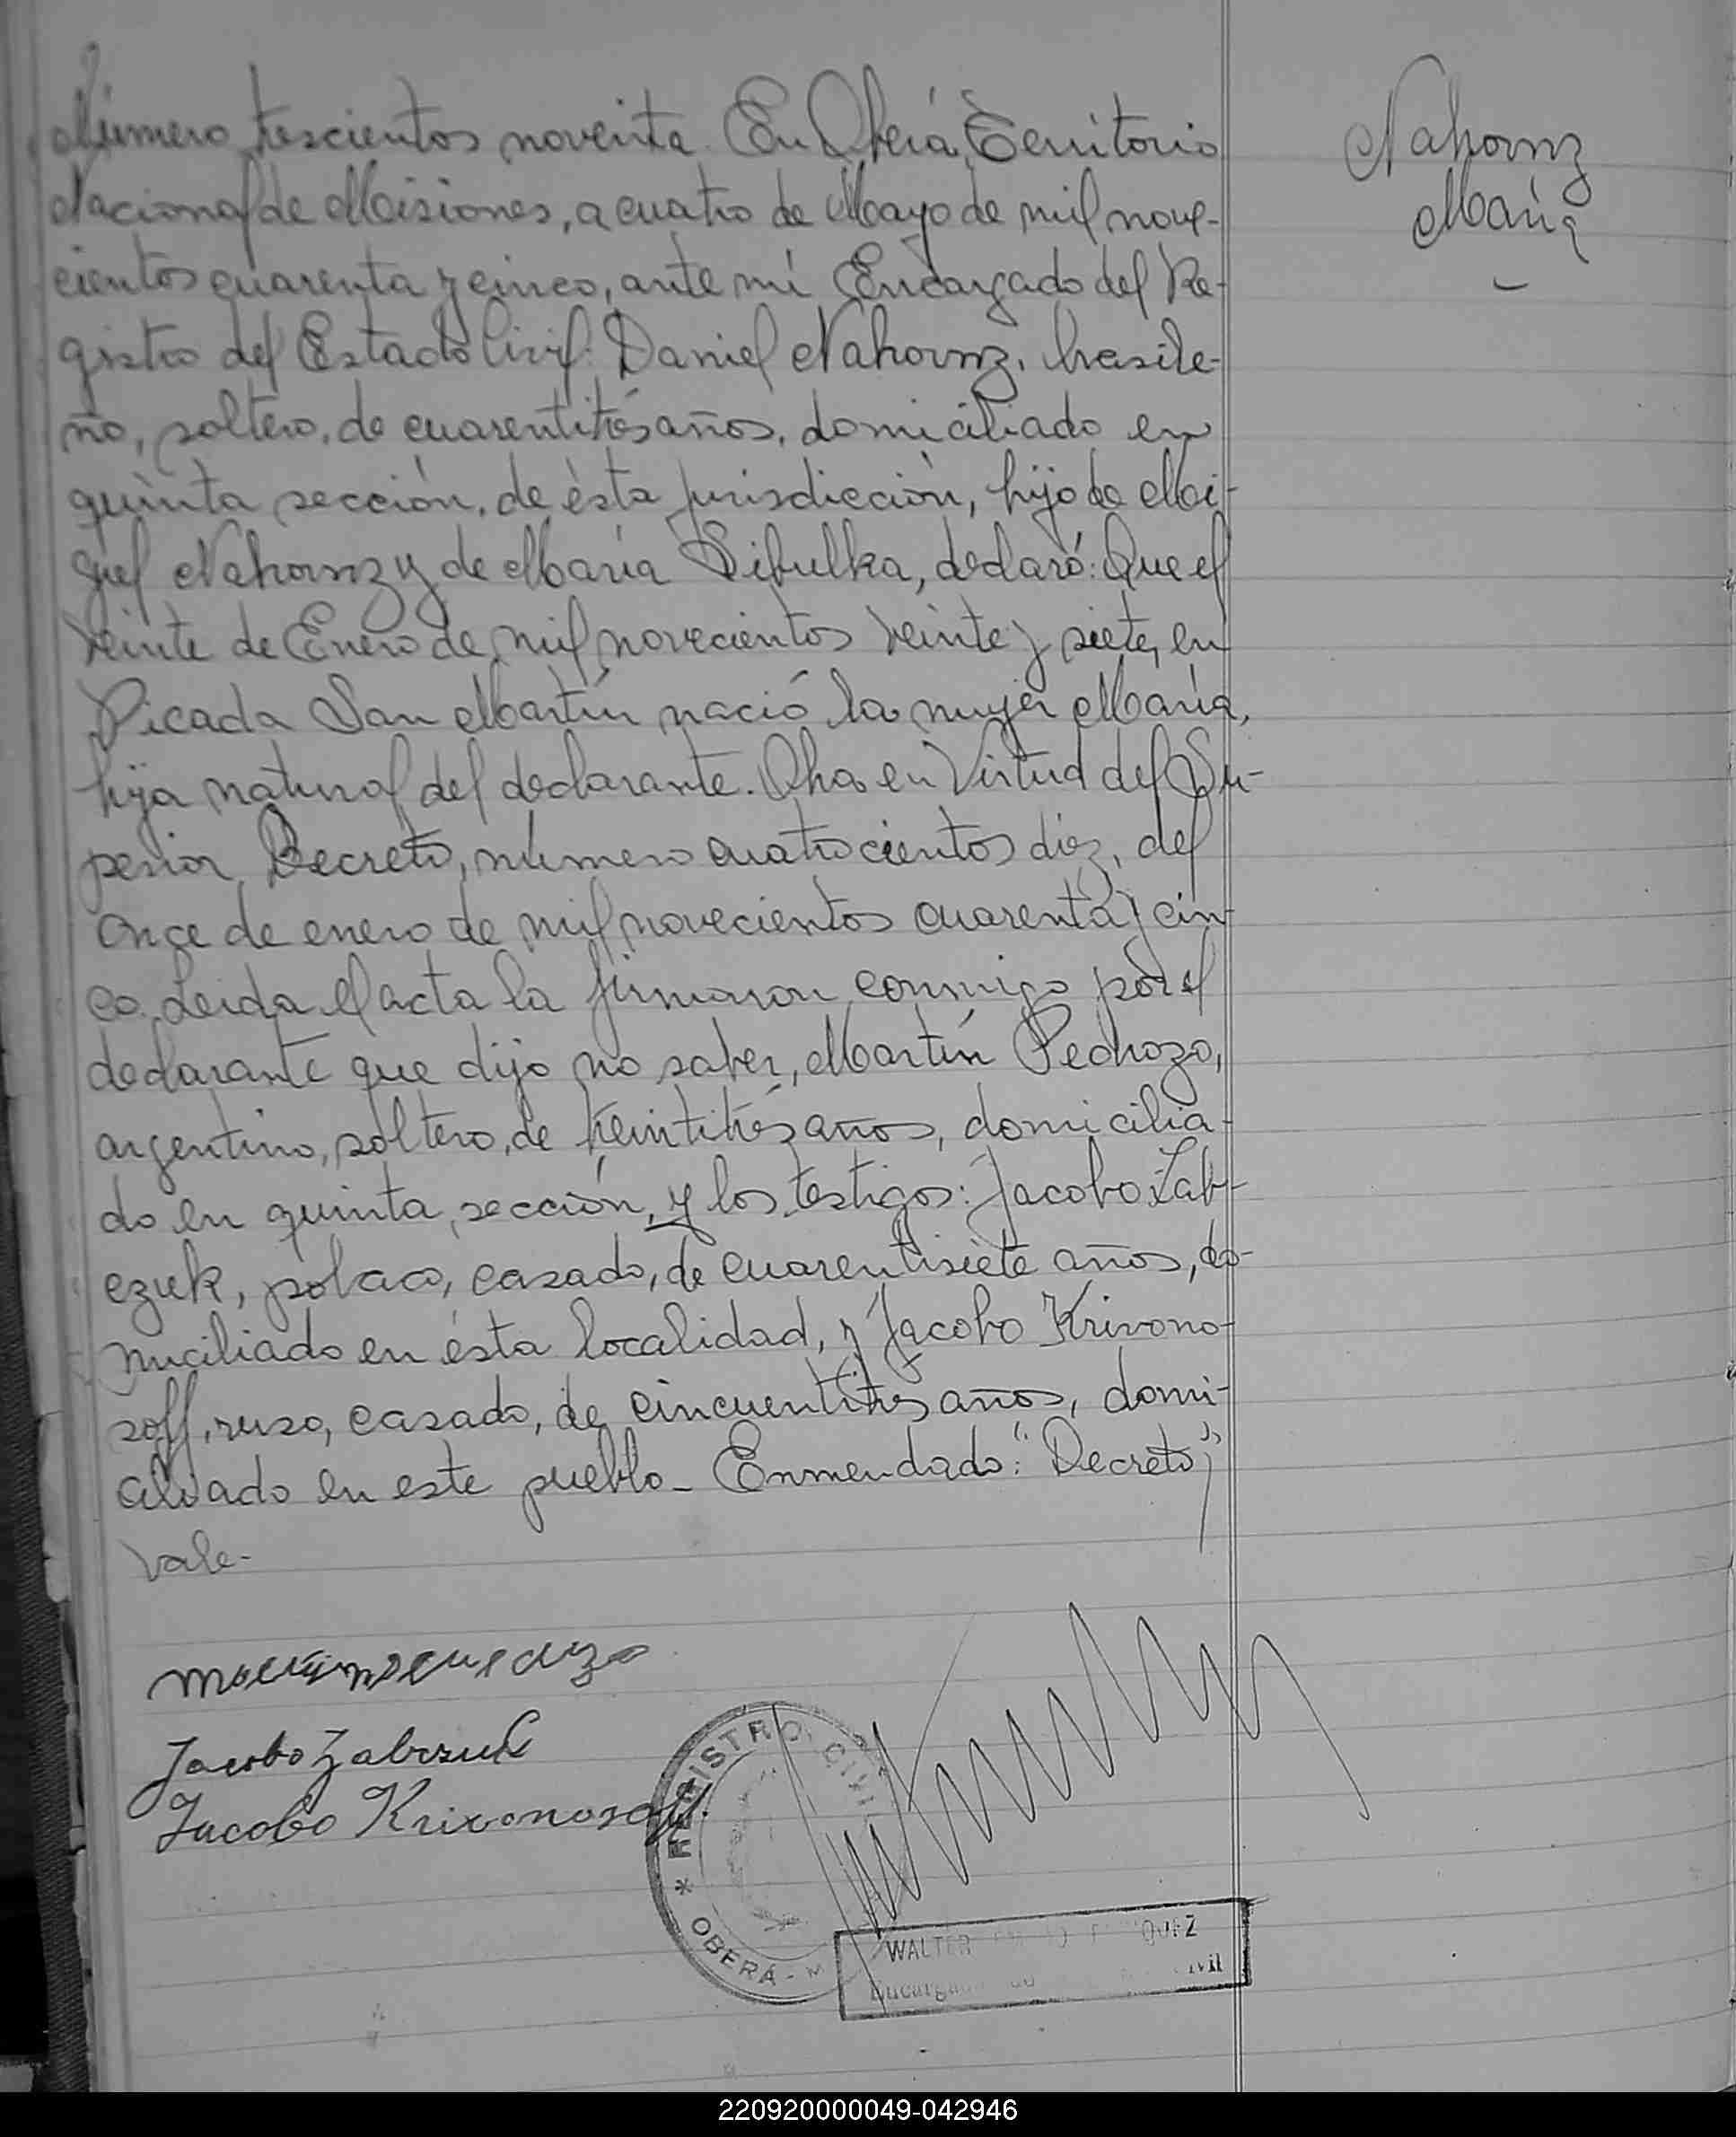 Número trescientos noventa. En Oberá, Territorio
Nacional de Misiones, a cuatro de Mayo de mil nove-
cientos cuarenta y cinco, ante mi Encargado del Re-
gistro del Estado Civil: Daniel Nahornz, brasile-
ño, soltero, de cuarentitrés años, domiciliado en
quinta sección, de ésta jurisdicción, hijo de Mi-
guel Nahornz y de María Sibulka, declaró: Que el
veinte de Enero de mil novecientos veinte y siete, en
Picada San Martín nació la mujer María,
hija natural del declarante. Oha en Virtud del Su-
perior Decreto, número cuatrocientos diez, del
once de enero de mil novecientos cuarenta y cin-
co. Leida el acta la firmaron conmigo por el
declarante que dijo no saber, Martín Pedrozo,
argentino, soltero, de treintitrés años, domicilia-
do en quinta sección, y los testigos: Jacobo Zab-
czuk, polaco, casado, de cuarentisiete años, do-
miciliado en ésta localidad, y Jacobo Krivono-
soff, ruso, casado, de cincuentitrés años, domi-
ciliado en este pueblo_ Enmendado: "Decreto",
Vale-
Nahornz
María
Jacobo Zabczuk
Jacobo Krivonosoff.
* REGISTRO CIVIL
OBERÁ - M
WALTER
220920000049-042946